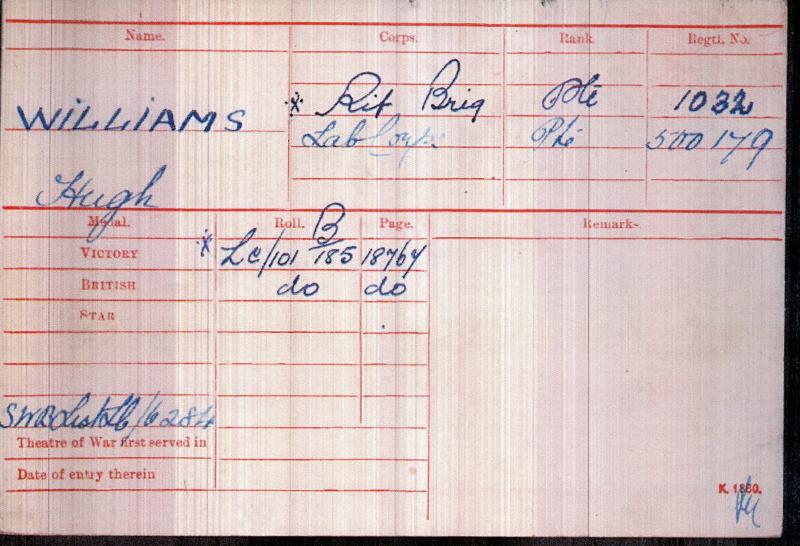 Name. Corps. Rank. Regtl. No.
WILLIAMS * Rif Brig Pte 1032
Lab Corps Pte 500179
Hugh
Medal. Roll. Page. Remarks.
B
VICTORY * LC/101 185 18764
BRITISH do do
STAR
SWB List LC/6284
Theatre of War first served in
Date of entry therein
K. 1380.